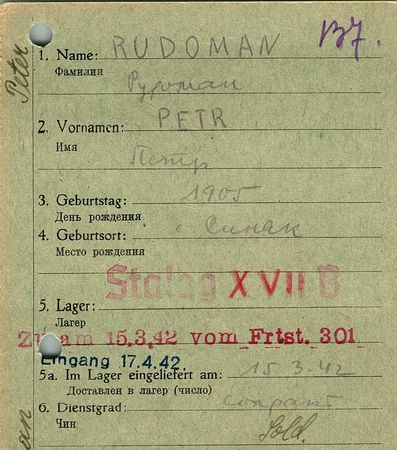 Peter
B7.
1. Name: RUDOMAN
Фамилия
Рудоман
2. Vornamen: PETR
Имя
Петр
3. Geburtstag: 1905
День рождения
4. Geburtsort: с. Синяк
Место рождения
Stalag XVII B
5. Lager:
Лагерь
Zu am 15.3.42 vom Frtst. 301
Eingang 17.4.42.
5a. Im Lager eingeliefert am: 15.3.42
Доставлен в лагерь (число)
6. Dienstgrad: Солдат
Чин
Sold.